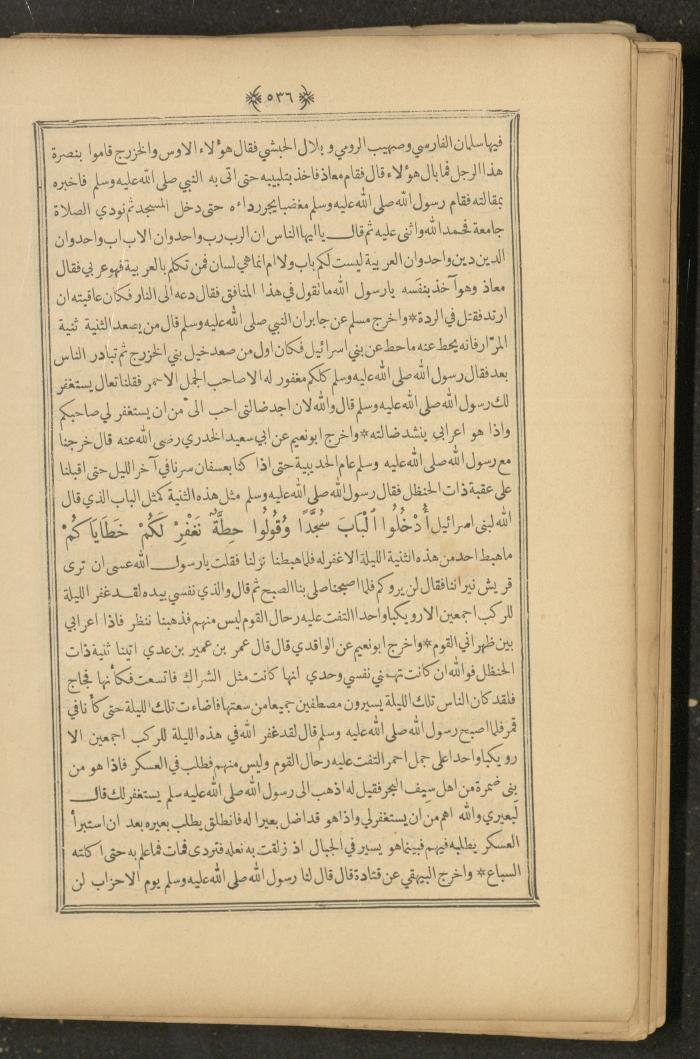 ٥٣٦
فيها سلمان الفارسي وصهيب الرومي وبلال الحبشي فقال هؤلاء الاوس والخزرج قاموا بنصرة
هذا الرجل فما بال هؤلاء قال فقام معاذ فاخذ بتلبيبه حتى اتى به النبي صلى الله عليه وسلم فاخبره
بمقالته فقام رسول الله صلى الله عليه وسلم مغضبا يجر رداءه حتى دخل المسجد ثم نودي الصلاة
جامعة فحمد الله واثنى عليه ثم قال يا ايها الناس ان الرب رب واحد وان الاب اب واحد وان
الدين دين واحد وان العربية ليست لكم باب ولا ام انما هي لسان فمن تكلم بالعربية فهو عربي فقال
معاذ وهو آخذ بنفسه يا رسول الله ما تقول في هذا المنافق فقال دعه الى النار فكان عاقبته ان
ارتد فقتل في الردة * واخرج مسلم عن جابر ان النبي صلى الله عليه وسلم قال من يصعد الثنية ثنية
المرار فانه يحط عنه ما حط عن بني اسرائيل فكان اول من صعد خيل بني الخزرج ثم تبادر الناس
بعد فقال رسول الله صلى الله عليه وسلم كلكم مغفور له الا صاحب الجمل الاحمر فقلنا تعال يستغفر
لك رسول الله صلى الله عليه وسلم قال والله لان اجد ضالتي احب الىّ من ان يستغفر لي صاحبكم
واذا هو اعرابي ينشد ضالته * واخرج ابو نعيم عن ابي سعيد الخدري رضى الله عنه قال خرجنا
مع رسول الله صلى الله عليه وسلم عام الحديبية حتى اذا كنا بعسفان سرنا في آخر الليل حتى اقبلنا
على عقبة ذات الحنظل فقال رسول الله صلى الله عليه وسلم مثل هذه الثنية كمثل الباب الذي قال
الله لبنى اسرائيل أُدْخُلُوا ٱلْبَابَ سُجَّدًا وَقُولُوا حِطَّةٌ نَغْفِرْ لَكُمْ خَطَايَاكُمْ
ما هبط احد من هذه الثنية الليلة الا غفر له فلما هبطنا نزلنا فقلت يا رسول الله عسى ان ترى
قريش نيراننا فقال لن يروكم فلما اصبحنا صلى بنا الصبح ثم قال والذي نفسي بيده لقد غفر الليلة
للركب اجمعين الا رويكبا واحدا التفت عليه رحال القوم ليس منهم فذهبنا ننظر فاذا اعرابي
بين ظهراني القوم * واخرج ابو نعيم عن الواقدي قال قال عمر بن عمير بن عدي اتينا ثنية ذات
الحنظل فوالله ان كانت تهمني نفسي وحدي انها كانت مثل الشراك فاتسعت فكأنها فجاج
فلقد كان الناس تلك الليلة يسيرون مصطفين جميعا من سعتها فاضاءت تلك الليلة حتى كأنا في
قمر فلما اصبح رسول الله صلى الله عليه وسلم قال لقد غفر الله في هذه الليلة للركب اجمعين الا
رويكبا واحدا على جمل احمر التفت عليه رحال القوم وليس منهم فطلب في العسكر فاذا هو من
بني ضمرة من اهل سيف البحر فقيل له اذهب الى رسول الله صلى الله عليه سلم يستغفر لك قال
لبعيري والله اهم من ان يستغفر لي واذا هو قد اضل بعيرا له فانطلق يطلب بعيره بعد ان استبرأ
العسكر يطلبه فيهم فبينما هو يسير في الجبال اذ زلقت به نعله فتردى فمات فما علم به حتى اكلته
السباع * واخرج البيهقي عن قتادة قال قال لنا رسول الله صلى الله عليه وسلم يوم الاحزاب لن